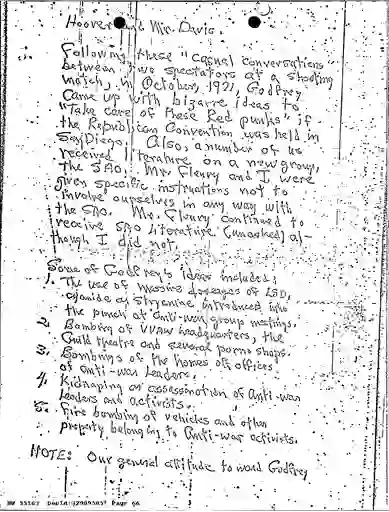 Hoover and Mr. Davis.
Following these "casual conversations"
between two spectators at a shooting
match, in October, 1971, Godfrey
came up with bizarre ideas to
"Take care of these Red punks" if
the Republican Convention was held in
San Diego. Also, a number of us
received literature on a new group,
the SAO. Mr. Fleury and I were
given specific instructions not to
involve ourselves in any way with
the SAO. Mr. Fleury continued to
receive SAO literature (unasked) al-
though I did not.
Some of Godfrey's ideas included;
1. The use of massive dosages of LSD,
cyanide or strycnine introduced into
the punch at Anti-war group meetings.
2. Bombing of VVAW headquarters, the
Guild theatre and several porno shops.
3. Bombings of the homes offices
of anti-war leaders.
4. Kidnaping or assassonation of Anti-war
leaders and activists.
5. Fire bombing of vehicles and other
property belonging to Anti-war activists.
NOTE: Our general attitude toward Godfrey
Page 66